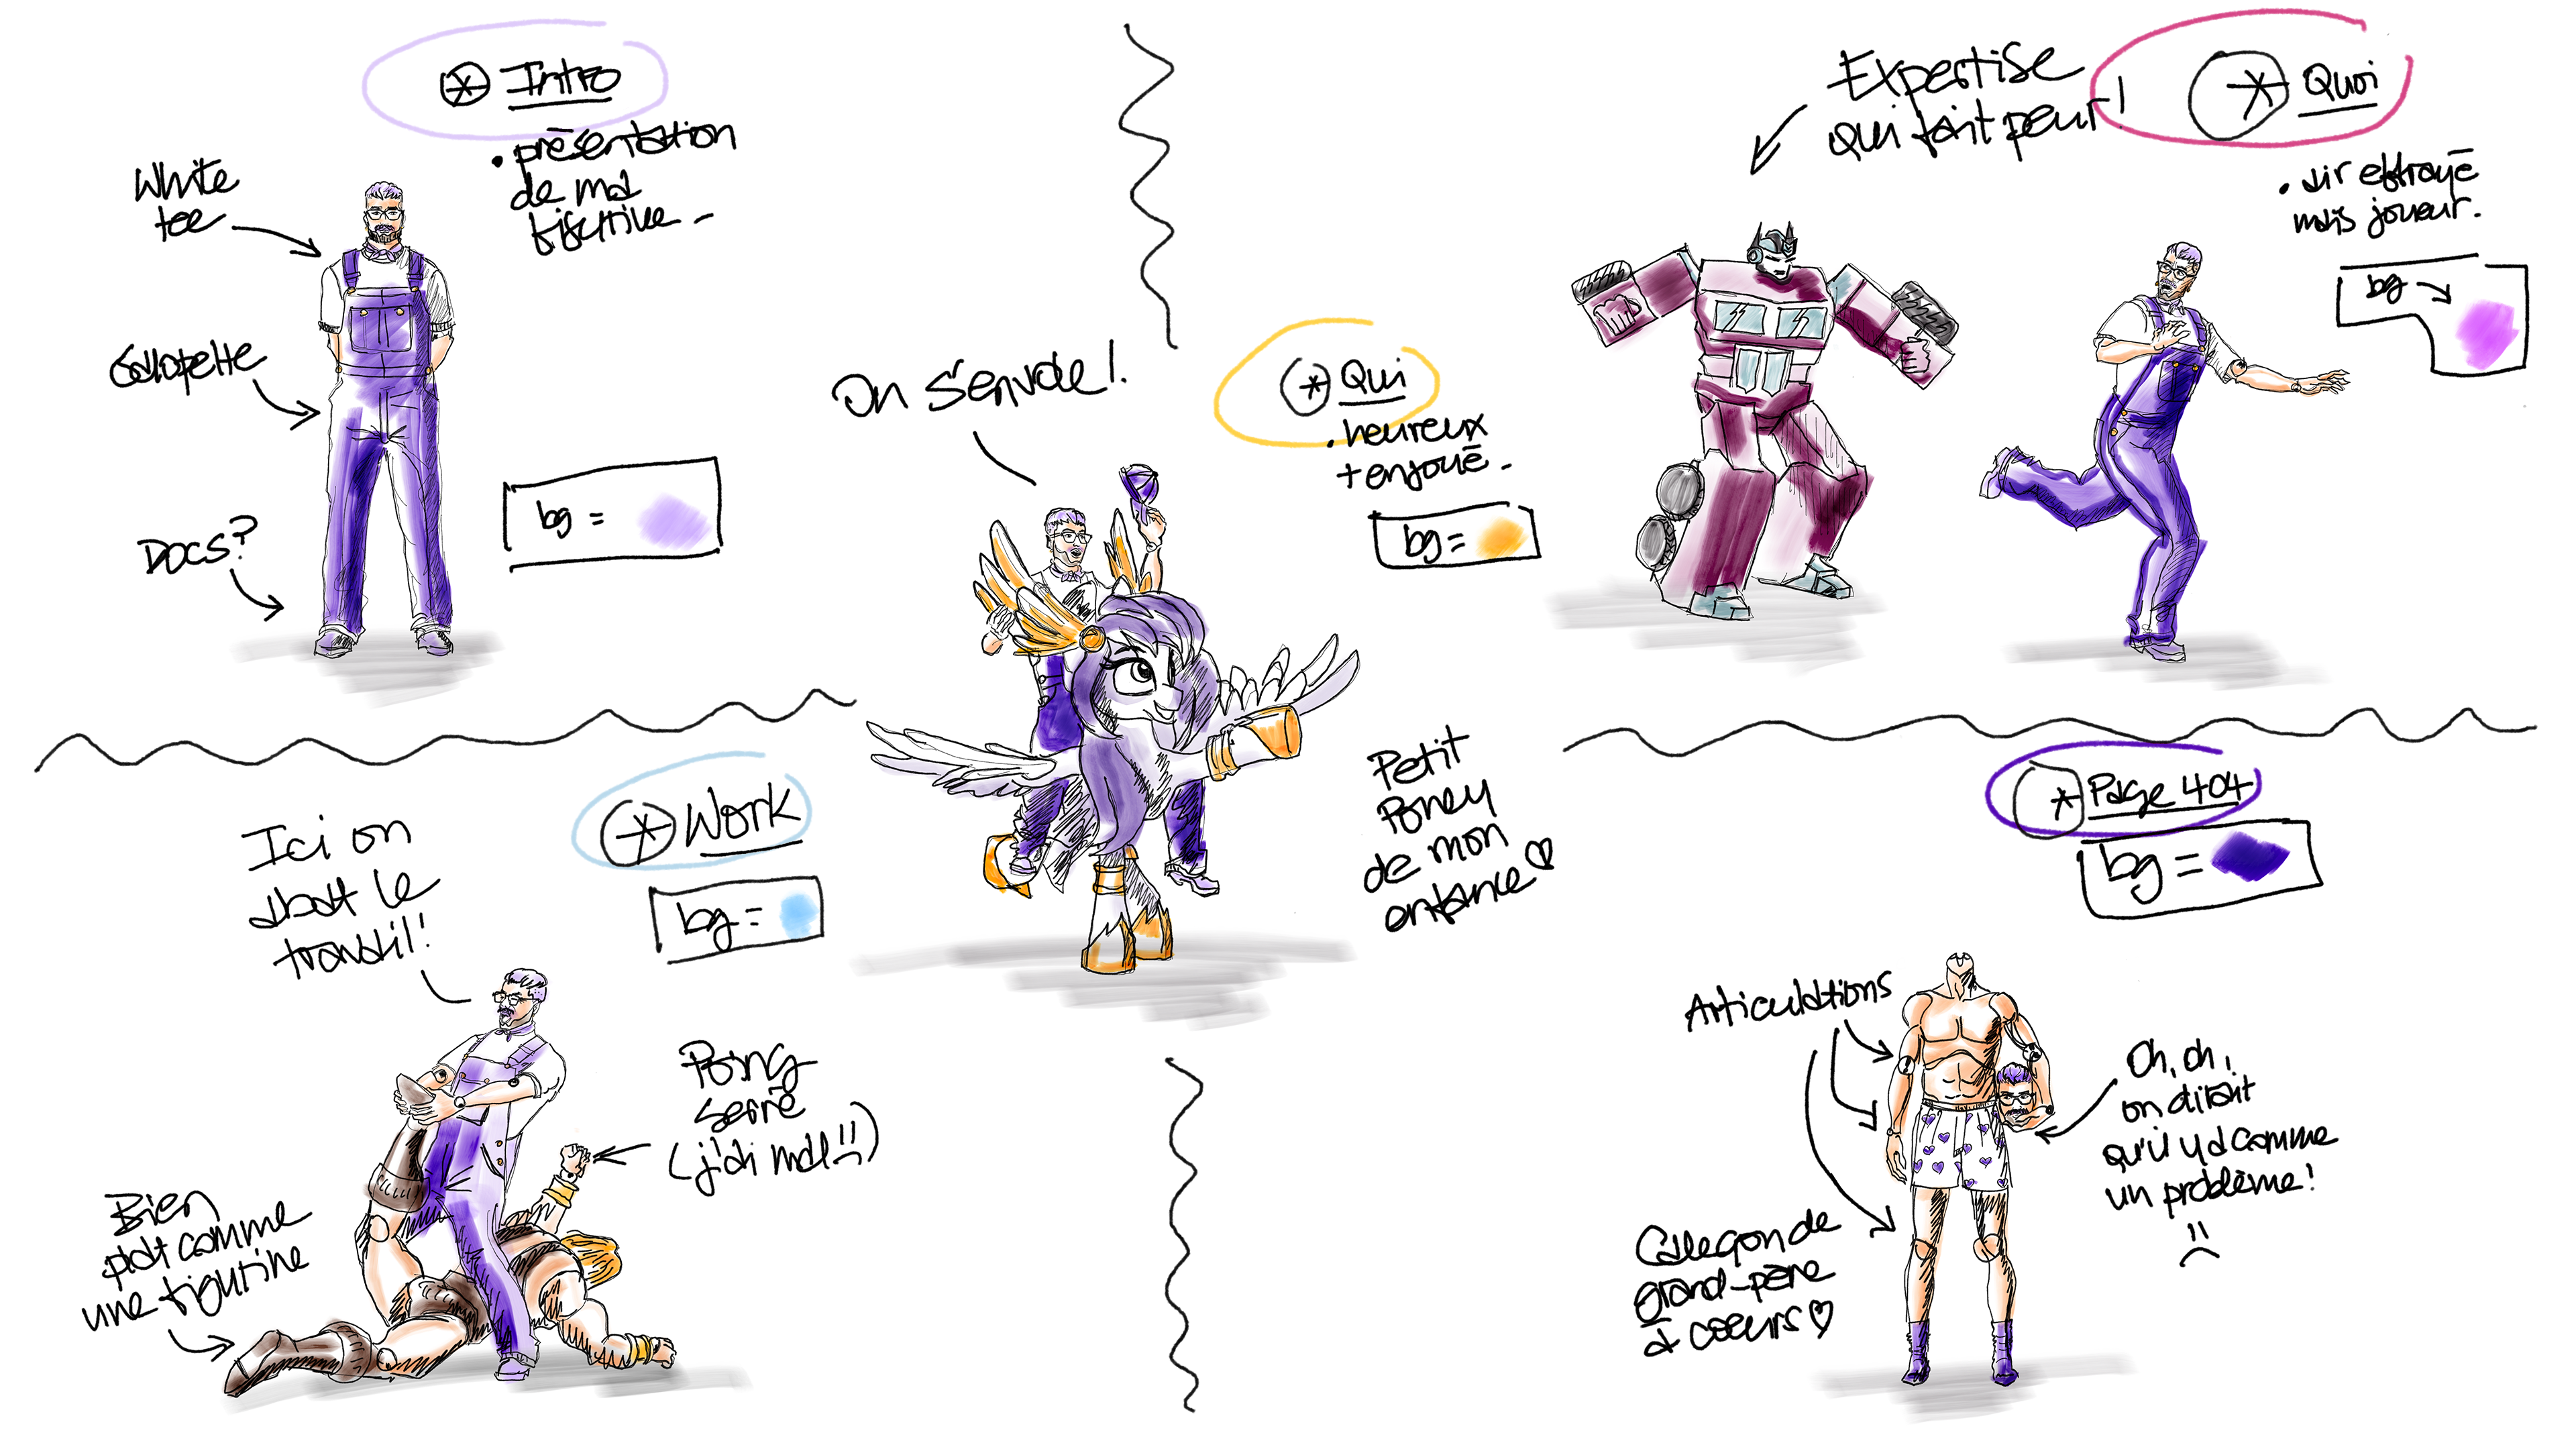 Intro
• présentation
de ma
figurine -
White
tee
Salopette
DOCS?
bg =
On s'envole !
Qui
• heureux
+ enjoué -
bg =
Petit
Poney
de mon
enfance ♡
Expertise
qui fait peur !
Quoi
• air effrayé
mais joueur.
bg →
Work
bg =
Ici on
abat le
travail !
Poing
serré
(j'ai mal !!)
Bien
plat comme
une figurine
Page 404
bg =
Articulations
Oh, oh,
on dirait
qu'il y a comme
un problème !
Caleçon de
grand-père
à coeurs ♡